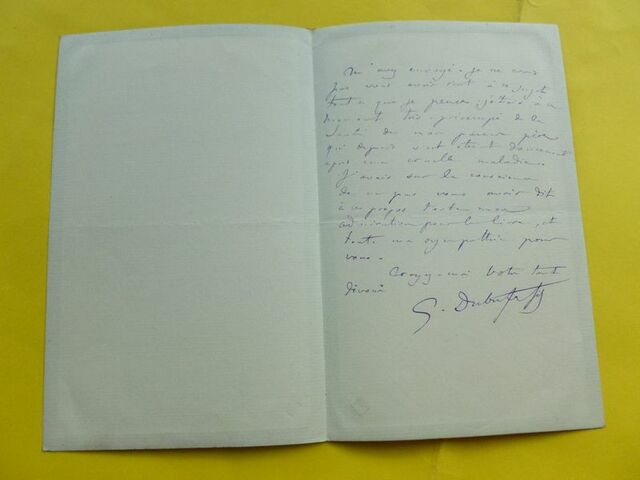 m'avez envoyé. Je ne crois
pas vous avoir écrit à ce sujet
tout ce que je pense, j'étais à ce
moment très préoccupé de la
santé de mon pauvre père
qui depuis s'est éteint doucement
après une cruelle maladie.
J'avais sur la conscience
de ne pas vous avoir dit
à ce propos toute mon
admiration pour le livre, et
toute ma sympathie pour
vous.
Croyez-moi votre tout
dévoué
G. Dubufe fils